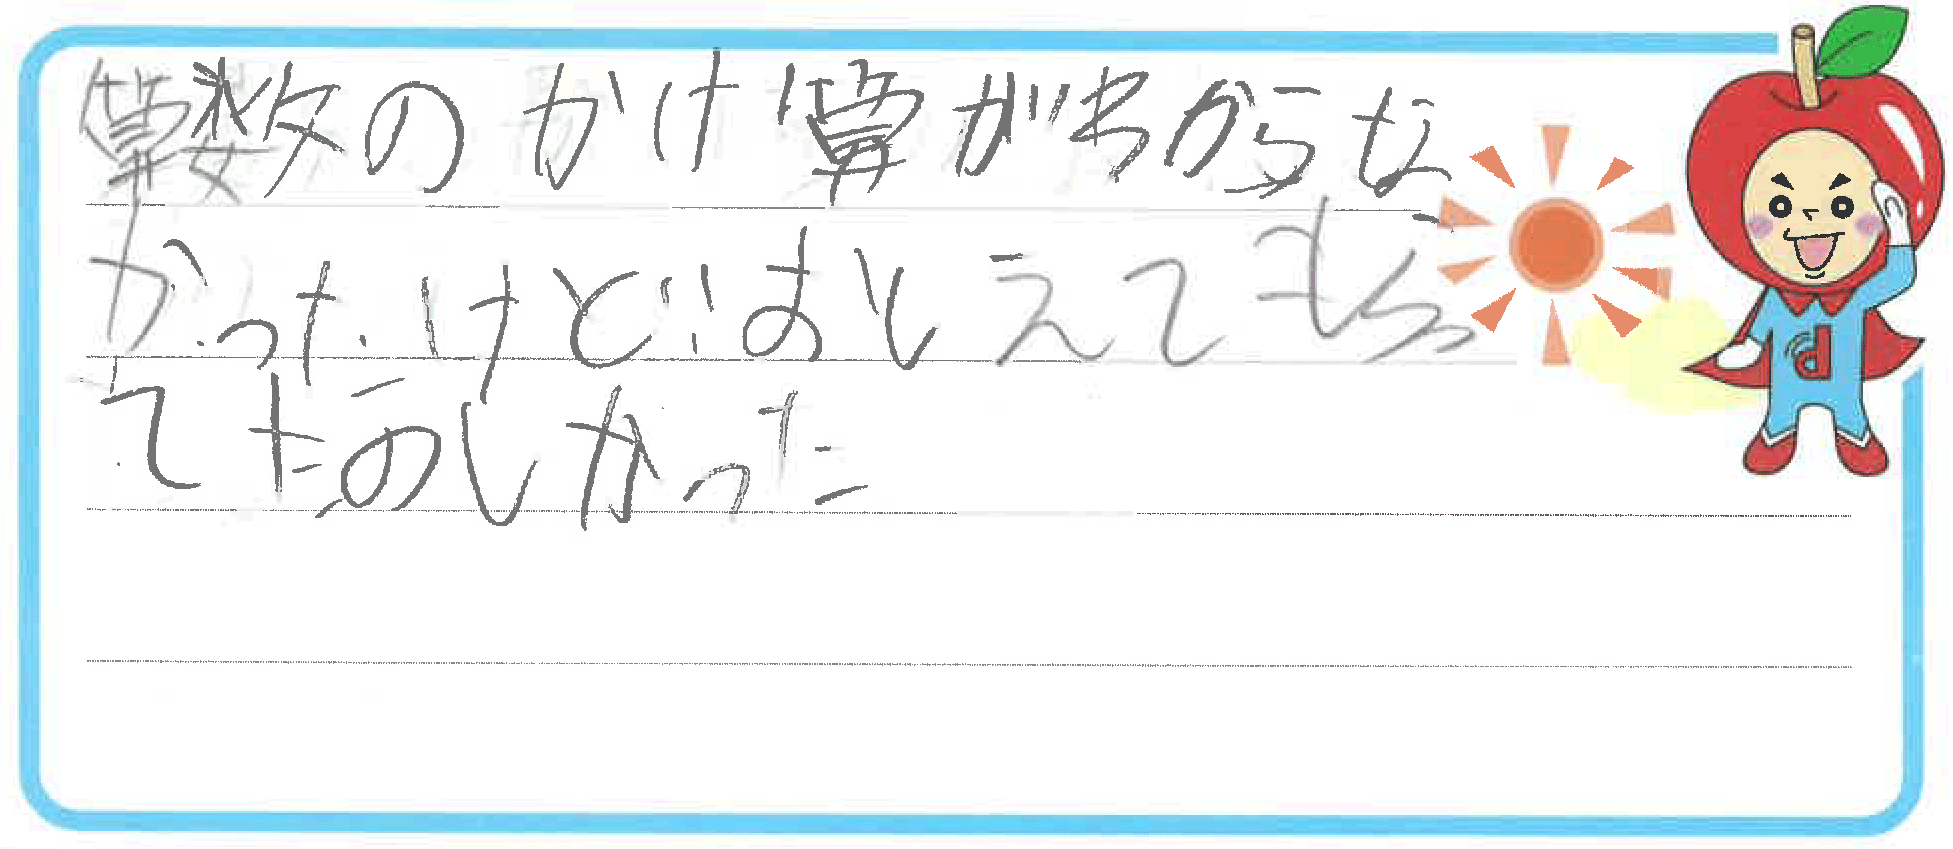 算数のかけ算がわからな
かったけどおしえてもらっ
てたのしかった
d